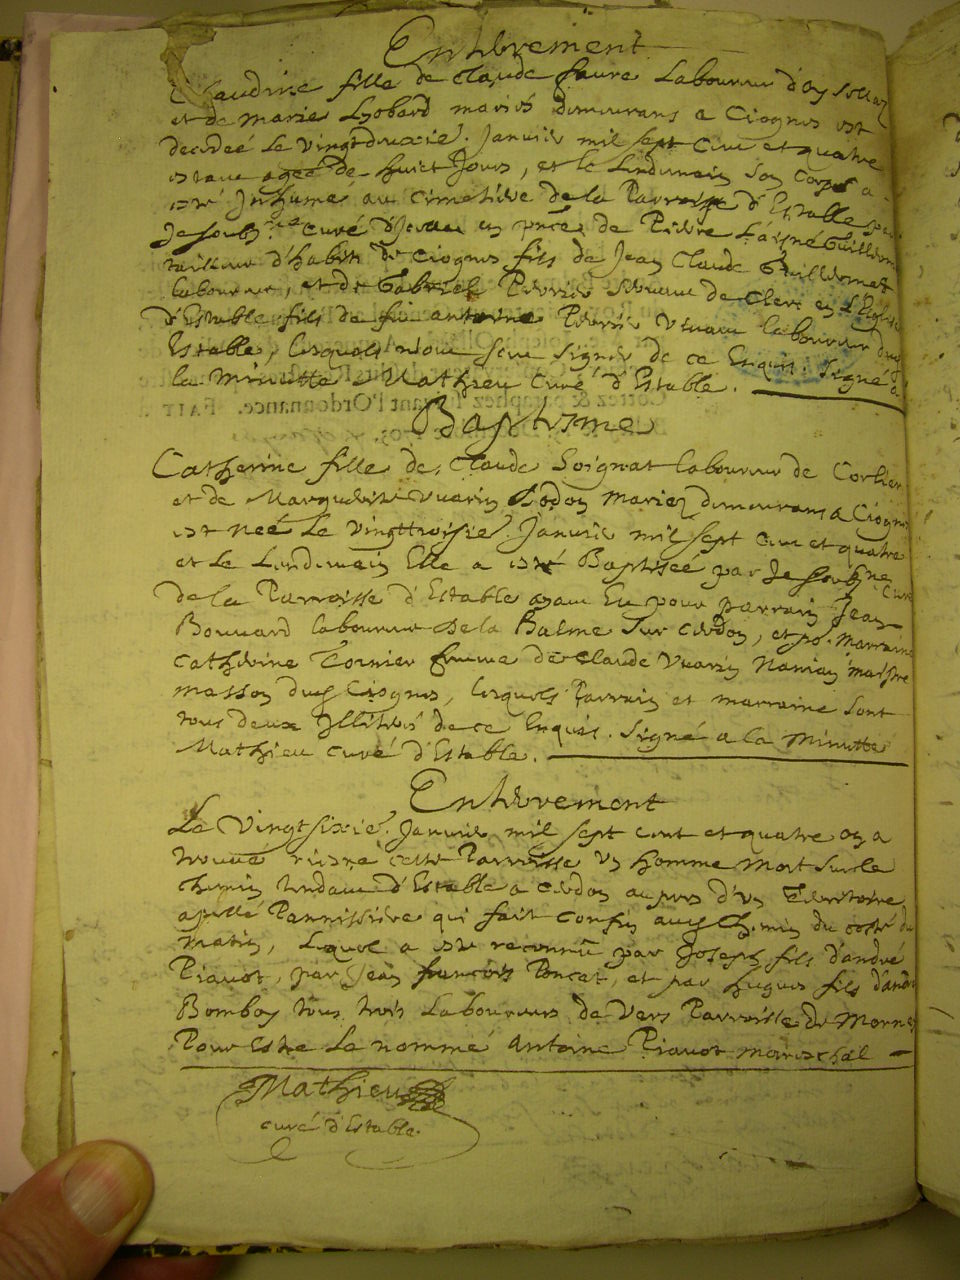 Enterrement
Claudine fille de Claude faure Laboureur d'Oysellaz
et de marie Lhobard mariés demeurans a Ciognes est
decedeé Le vingtdeuxie. Janvier mil sept cent et quatre
estant ageé de huict Jours, et le Lendemain son corps a
esté Inhumé au Cimetiere de la Parroisse d'Estables par
Je soubz.né curé d'Icelle en pnce de Pierre
tailleur d'habits de Ciognes fils de Jean Claude Guillermet
laboureur, et de Gabriel Perrier servant de Clerc en L'Eglise
d'Estable fils de fu antoine Perrier vivant laboureur dud
Estable, lesquels n'ont sceu signer de ce Enquis. Signé à
la Minutte Mathieu Curé d'Estable.
Baptesme
Catherine fille de Claude Soignat laboureur de Corlier
et de Marguerite vuarin Bodon Mariez demeurans a Ciognes
est neé Le vingttroisie. Janvier mil sept cent et quatre
et Le Lendemain Elle a esté Baptiseé par Je soubz.né Curé
de la Parroisse d'Estable ayant Eu pour parrain Jean
Bouvard laboureur de la Balme sur Cerdon, et po. Marraine
Catherine Tornier femme de Claude Vuarin maistre
masson dud Ciognes, lesquels Parrain et marraine sont
tous deux Illiterés de ce Enquis. Signé a la Minutte
Mathieu curé d'Estable.
Enterrement
Le Vingtsixie. Janvier mil sept cent et quatre on a
trouvé riere cette Parroisse un homme mort sur le
chemin tendant d'Estable a Cerdon aupres d'un Territoire
apellé Pannissiere qui fait confin aud Chemin du costé du
matin, Lequel a esté reconnû par Joseph fils d'andré
Piavot, par Jean françois Poncet, et par Hugues fils d'andré
Bomboy tous trois Laboureurs de Vers Parroisse de Mornay
Pour Estre Le nommé Antoine Piavot mareschal
Mathieu
curé d'Estable.